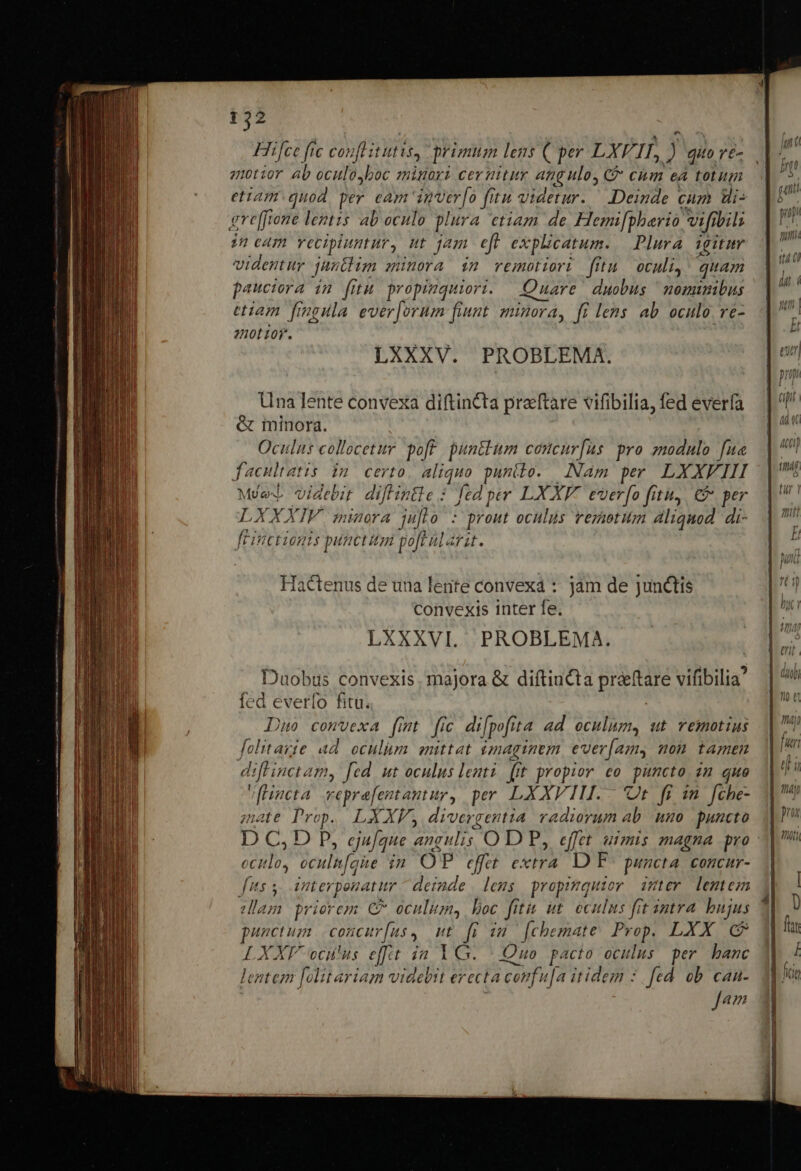 132
Hiſce ſic conſtitutis, primum lens ( per LXVII, ) quo re-
motior ab oculo, hoc minori cernitur angulo, & cum ea totum
etiam quod per eam inverſo ſitu videtur. Deinde cum di-
greſſione lentis ab oculo plura etiam de Hemiſphærio viſibili
in eam recipiuntur, ut jam eſt explicatum. Plura igitur
videntur junctim minora in remotiori ſitu oculi, quam
pauciora in ſitu propinquiori. Quare duobus nominibus
etiam ſingula everſorum fiunt minora, ſi lens ab oculo re-
motior.
LXXXV. PROBLEMA.
Una lente convexa diſtincta præſtare viſibilia, ſed everſa
& minora.
Oculus collocetur poſt punctum concurſus pro modulo ſuæ
facultatis in certo aliquo puncto. Nam per LXXVIII
videbit diſtincte : ſed per LXXV everſo ſitu, & per
LXXXIV minora juſto : prout oculus remotum aliquod di-
ſtinctionis punctum poſtularit.
Hactenus de una lente convexa : jam de junctis
convexis inter ſe.
LXXXVI. PROBLEMA.
Duobus convexis majora & diſtincta præſtare viſibilia
ſed everſo ſitu.
Duo convexa ſint ſic diſpoſita ad oculum, ut remotius
ſolitarie ad oculum mittat imaginem everſam, non tamen
diſtinctam, ſed ut oculus lenti ſit propior eo puncto in quo
ſtincta repræſentantur, per LXXVIII. Ut ſi in ſche-
mate Prop. LXXV, divergentia radiorum ab uno puncto
D C, D P, ejuſque angulis O D P, eſſet nimis magna pro
oculo, oculuſque in O P eſſet extra D F puncta concur-
ſus ; interponatur deinde lens propinquior inter lentem
illam priorem & oculum, hoc ſitu ut oculus ſit intra hujus
punctum concurſus, ut ſi in ſchemate Prop. LXX &
LXXV oculus eſſet in Y G. Quo pacto oculus per hanc
lentem ſolitariam videbit erecta confuſa itidem : ſed ob cau-
ſam